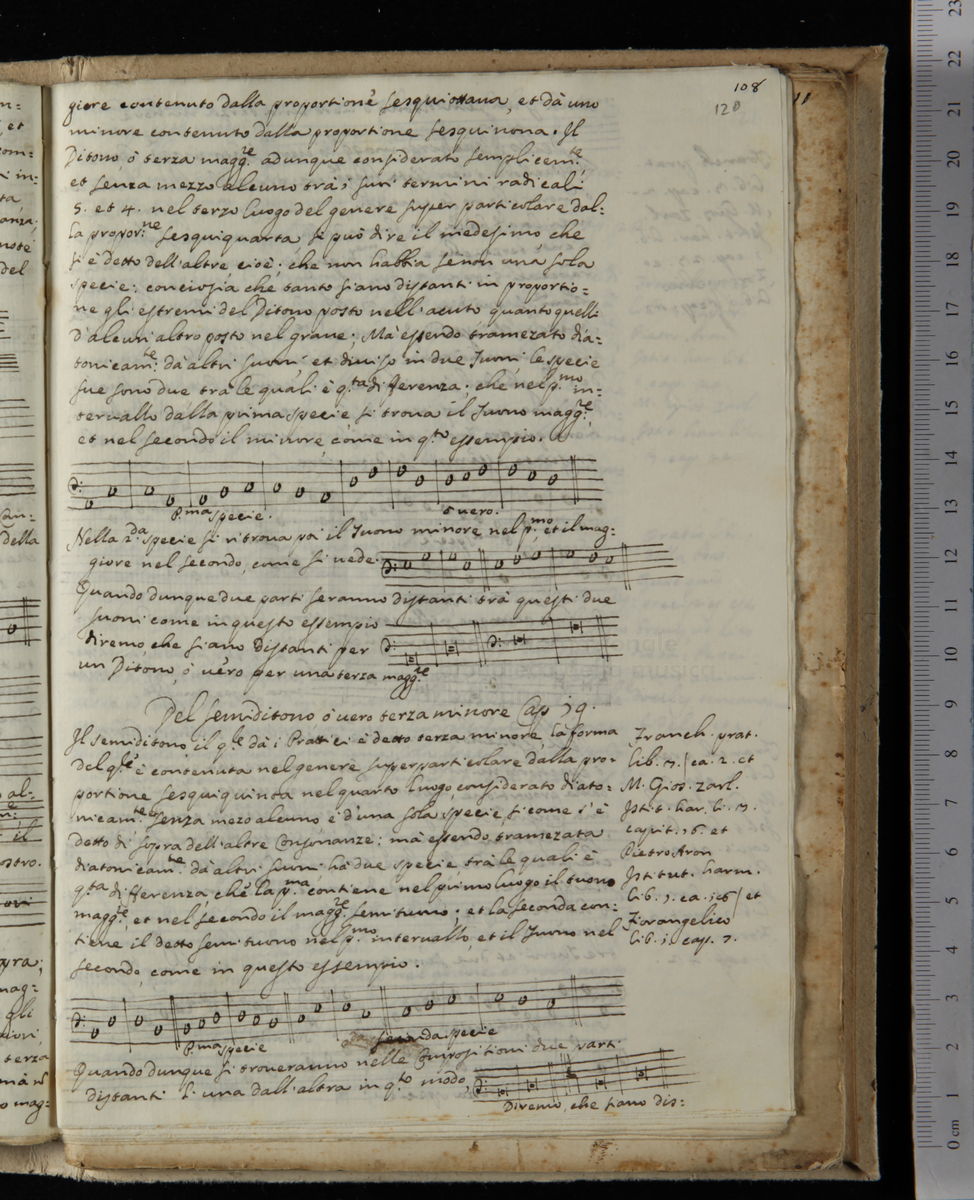 108
120
giore contenuto dalla proportione sesquiottaua, et dà uno
minore contenuto dalla proportione sesquinona. Il
Ditono ò terza magg.re adunque considerato semplicem.te
et senza mezzo alcuno trà i suoi termini radicali
5. et 4. nel terzo luogo del genere super particolare dal-
la propor.ne sesquiquarta, si può dire il medesimo, che
si è detto dell'altre, cioè; che non habbia se non una sola
specie; conciosia che tanto siano distanti in proportio=
ne gli estremi del Ditono posto nell'acuto quanto quelli
d'alcun altro posto nel graue; Mà essendo tramezato dia-
tonicam.te dà altri suoni, et diuiso in due Tuoni, le specie
sue sono due trà le quali è q.ta differenza. che nel p.mo in-
teruallo dalla prima specie si troua il Tuono magg.re,
et nel secondo il minore, come in q.to essempio.
P.ma specie.
ò uero.
Nella 2.da specie si ritroua poi il Tuono minore nel p.mo, et il mag-
giore nel secondo, come si uede.
Quando dunque due parti seranno distanti trà questi due
suoni come in questo essempio
diremo, che siano distanti per
un Ditono, ò uero per una terza magg.re
Del semiditono ò uero terza minore Cap 19.
Il semiditono, il q.le dà i Prattici è detto terza minore, la forma
del q.le è contenuta nel genere superparticolare dalla pro-
portione sesquiquinta nel quarto luogo, considerato diato=
nicam.te senza mezo alcuno è d'una sola specie, si come s'è
detto di sopra dell'altre Consonanze; mà essendo tramezata
diatonicam.te dà altri suoni hà due specie, trà le quali è
q.ta differenza, che la p.ma contiene nel primo luogo il tuono
magg.re, et nel secondo il magg.re semituono; et la seconda con-
tiene il detto semituono nel p.mo interuallo, et il Tuono nel
secondo, come in questo essempio.
Franch. prat.
lib. 3. ca. 2. et
M. Gios. Zarl.
Istit. har. li. 3.
capit. 16. et
Pietro Aron
Istitut. harm.
lib. 1. ca. 16 et
Fiorangelico
lib. 1. cap. 7.
P.ma specie
seconda specie
Quando dunque si troueranno nelle Compositioni due parti
distanti l'una dall'altra in q.to modo,
Diremo, che siano dis=